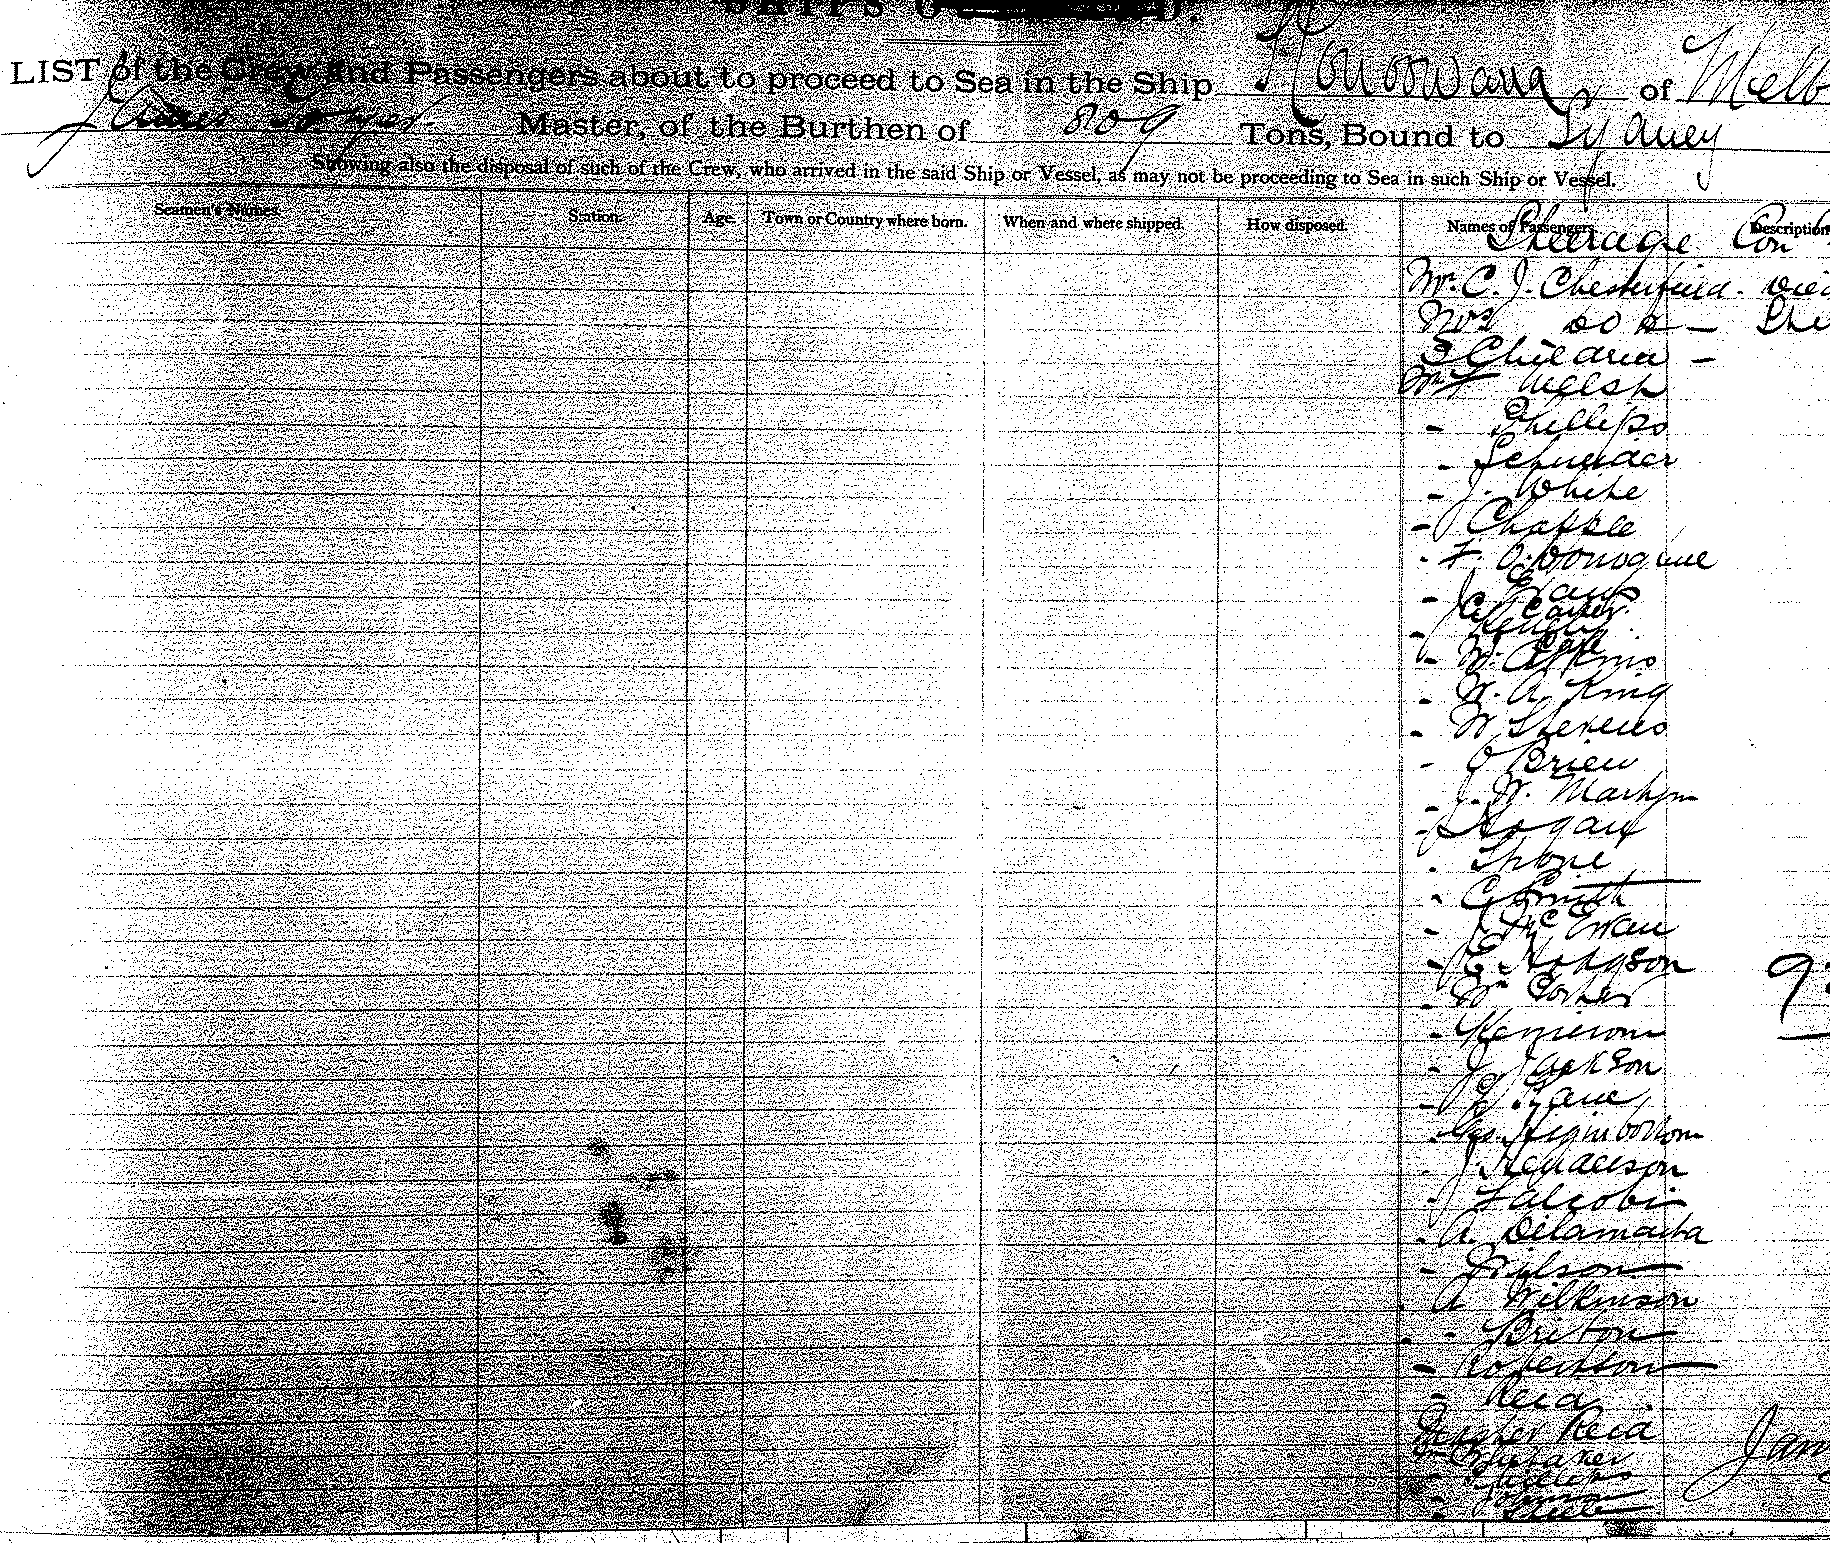 SHIPS
LIST of the Crew and Passengers about to proceed to Sea in the Ship Konoowarra of Melb
James Master, of the Burthen of 809 Tons, Bound to Sydney
Showing also the disposal of such of the Crew, who arrived in the said Ship or Vessel, as may not be proceeding to Sea in such Ship or Vessel.
Seamen's Names. Station. Age. Town or Country where born. When and where shipped. How disposed. Names of Passengers. Description
Steerage Con
Mr. C. J. Chesterfield
Mrs do
3 Children -
Welsh
- Phillips
- Schneider
- J. White
- Chapple
- F. O. Donoghue
- J Evans
C Carter
- W. Atkins
- W. A. King
- W Stevens
- O Brien
- J. W. Martyn
- J Hogan
- Shone
- C. Smith
- J McEwan
- E. Hodgson
- W
- Kerrison
- J Jackson
- J. Kane
- Geo. Higinbottom
- J. Henderson
- Jalcobi
- A. Delamaita
- J Wilson
- A Wilkinson
- Briton
- Robertson
- Reid
Reid
Jam